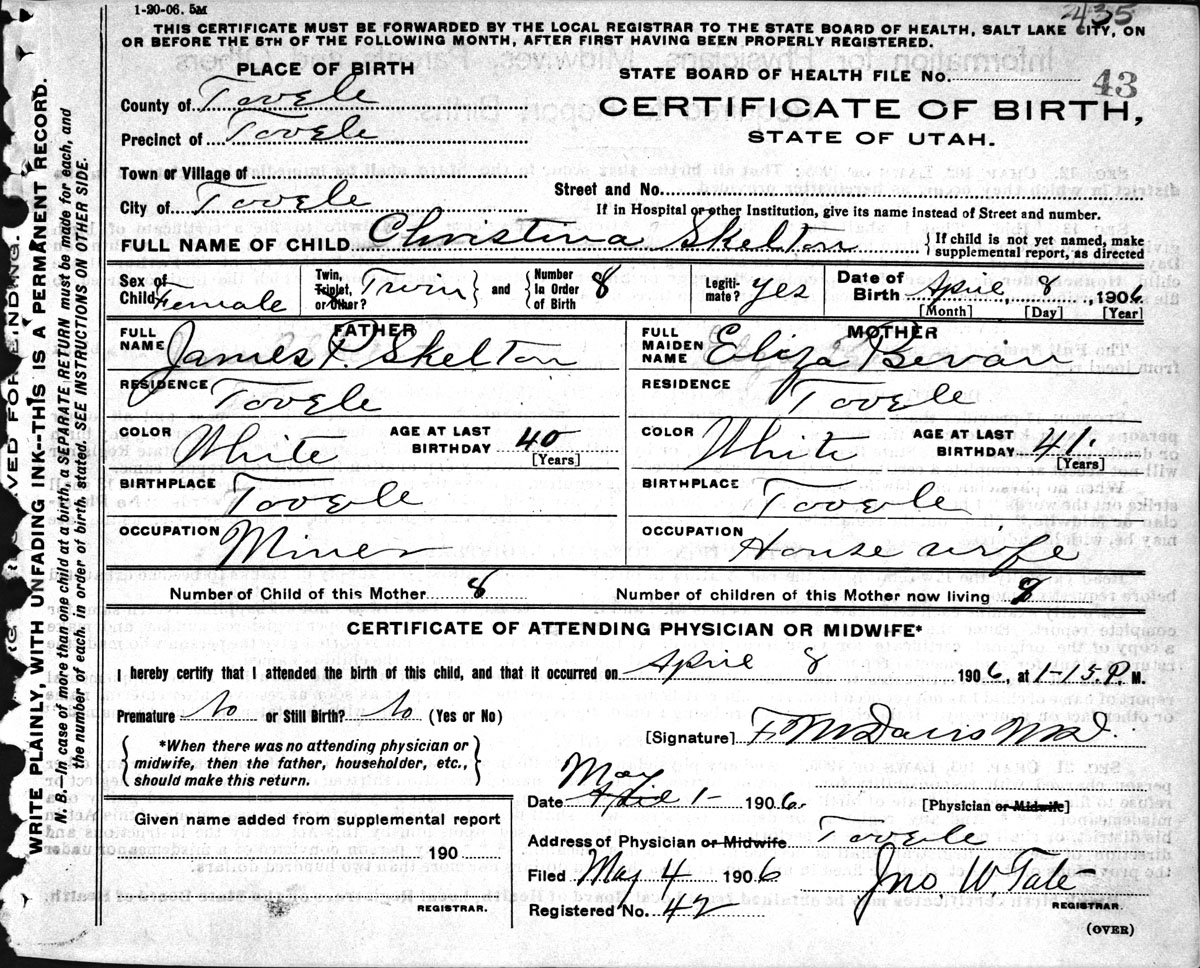 1-20-06. 5M
435
THIS CERTIFICATE MUST BE FORWARDED BY THE LOCAL REGISTRAR TO THE STATE BOARD OF HEALTH, SALT LAKE CITY, ON
OR BEFORE THE 5TH OF THE FOLLOWING MONTH, AFTER FIRST HAVING BEEN PROPERLY REGISTERED.
PLACE OF BIRTH
STATE BOARD OF HEALTH FILE No. 43
County of Tooele
CERTIFICATE OF BIRTH,
Precinct of Tooele
STATE OF UTAH.
Town or Village of
Street and No.
City of Tooele
If in Hospital or other Institution, give its name instead of Street and number.
FULL NAME OF CHILD Christina Skelton { If child is not yet named, make supplemental report, as directed
Sex of Child Female
Twin, Triplet, or Other? Twin } and { Number in Order of Birth 8
Legitimate? yes
Date of Birth April, 8, 1906
[Month] [Day] [Year]
FATHER
FULL NAME James P. Skelton
MOTHER
FULL MAIDEN NAME Eliza Bevan
RESIDENCE Tooele
RESIDENCE Tooele
COLOR White AGE AT LAST BIRTHDAY 40 [Years]
COLOR White AGE AT LAST BIRTHDAY 41. [Years]
BIRTHPLACE Tooele
BIRTHPLACE Tooele
OCCUPATION Miner
OCCUPATION House wife
Number of Child of this Mother 8 Number of children of this Mother now living 8
CERTIFICATE OF ATTENDING PHYSICIAN OR MIDWIFE*
I hereby certify that I attended the birth of this child, and that it occurred on April 8 1906, at 1-15.P. M.
Premature No or Still Birth? No (Yes or No)
[Signature] F M Davis M.D.
{ *When there was no attending physician or
midwife, then the father, householder, etc.,
should make this return. }
May
Date April 1- 1906. [Physician or Midwife]
Given name added from supplemental report
190
REGISTRAR.
Address of Physician or Midwife Tooele
Filed May 4 1906 Jno W. Tate
Registered No. 42 REGISTRAR.
(OVER)
WRITE PLAINLY, WITH UNFADING INK--THIS IS A PERMANENT RECORD.
N. B.—In case of more than one child at a birth, a SEPARATE RETURN must be made for each, and
the number of each, in order of birth, stated. SEE INSTRUCTIONS ON OTHER SIDE.